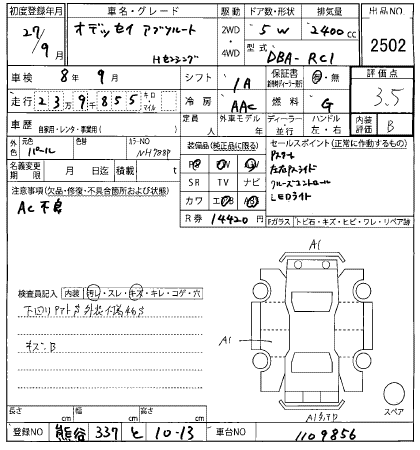 初度登録年月 車名・グレード 駆動 ドア数・形状 排気量 出品NO
27/9月 オデッセイ アブソルート Hセンシング 2WD・4WD 5W 2400cc 2502
型式 DBA-RC1
車検 8年9月 シフト IA 保証書 有・無 評価点
走行 23万9千855 キロ マイル 冷房 AAC 燃料 G 3.5
車歴 自家用・レンタ・事業用( ) 定員 人 外車モデル 年 ディーラー・並行 ハンドル 左・右 内装評価 B
外色 元色 パール 色替 カラーNO NH788P 装備品(純正品に限る) セールスポイント(正常に作動するもの)
名義変更期限 月 日迄 積載 t PS PW
SR TV ナビ
カワ エアB ABS
R券 14420円
Pスタート
左右Pスライド
クルーズコントロール
LEDライト
注意事項(欠品・修復・不具合箇所および状態)
AC不良
Fガラス トビ石・キズ・ヒビ・ワレ・リペア跡
検査員記入 内装 汚レ・スレ・キズ・キレ・コゲ・穴
キズ・B
A1
A1
スペア
長さ cm 幅 cm 高さ cm
登録NO 熊谷 337 と 10-13 車台NO 1109856